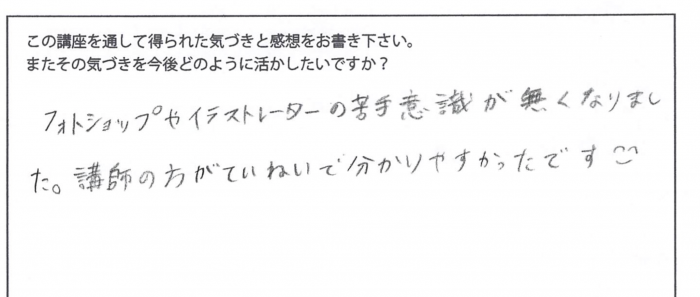 この講座を通して得られた気づきと感想をお書き下さい。
またその気づきを今後どのように活かしたいですか？
フォトショップやイラストレーターの苦手意識が無くなりまし
た。講師の方がていねいで分かりやすかったです